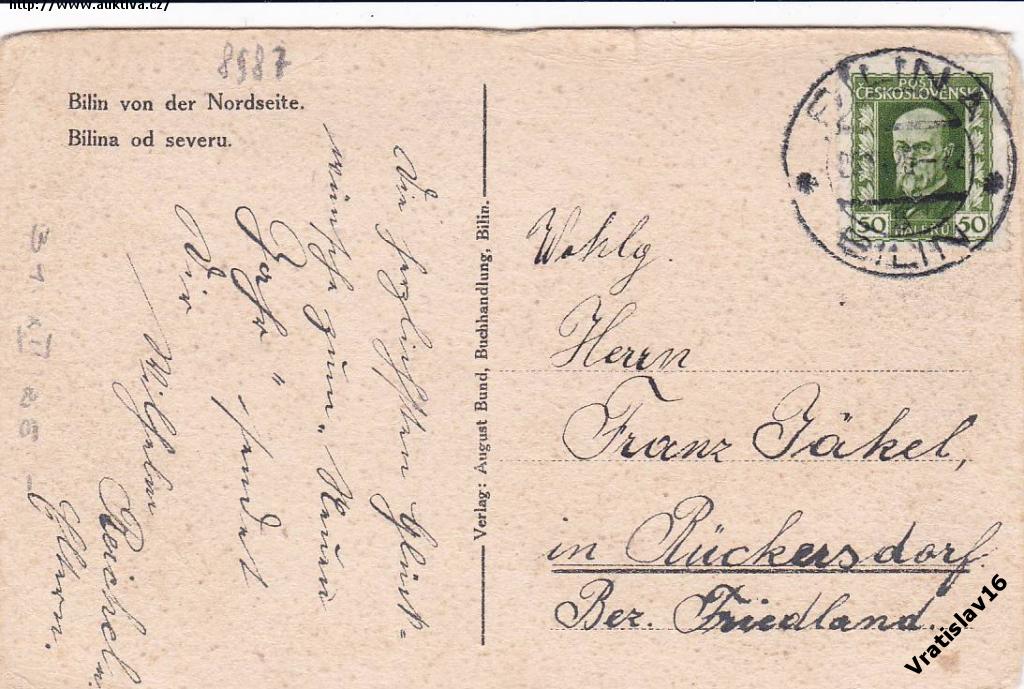 http://www.auktiva.cz/
8987
Bilin von der Nordseite.
Bilina od severu.
Die herzlichsten Glück-
wünsche zum "Neuen
Jahr" sendet
Dir
Wilhelm
Reichel
Eltern.
31 XII 26
Verlag: August Bund, Buchhandlung, Bilin.
BÍLINA
BILIN
POŠTA
ČESKOSLOVENSKÁ
50 HALÉŘŮ 50
Wohlg.
Herrn
Franz Jäkel,
in Rückersdorf
Bez. Friedland.
Vratislav16